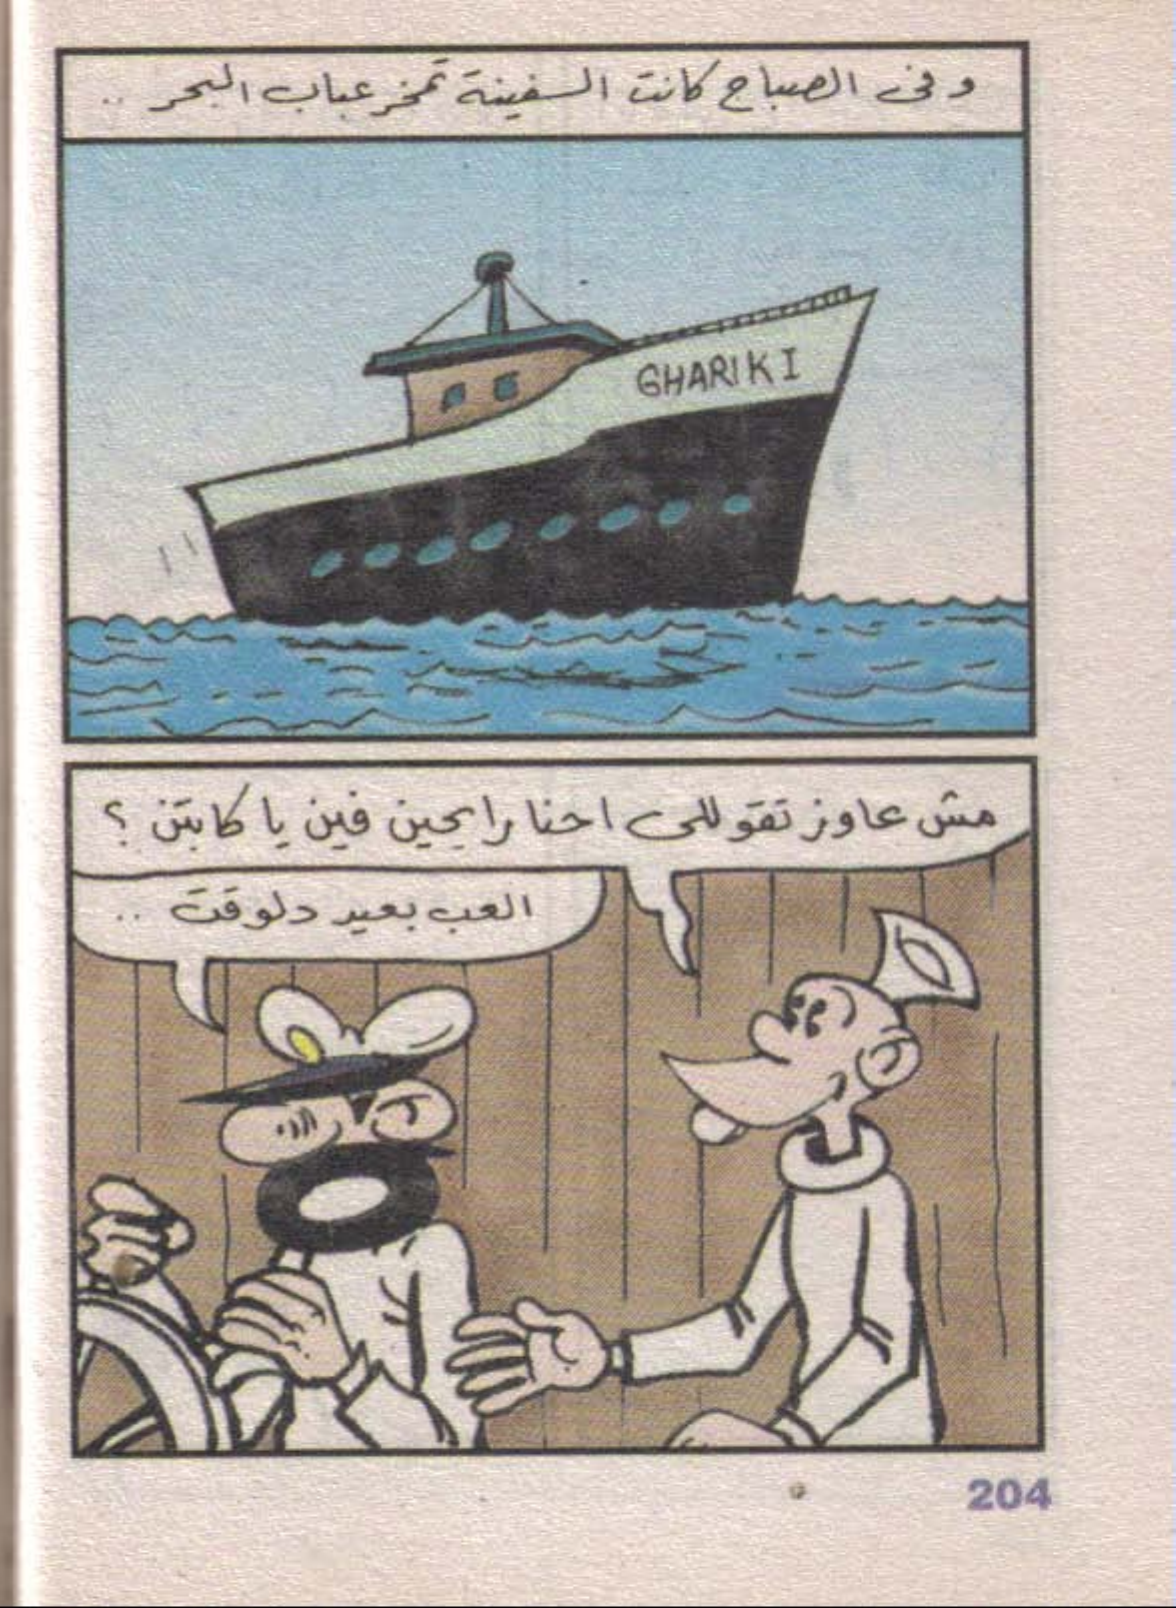 وفى الصباح كانت السفينة تمخر عباب البحر ..
GHARIK I
مش عاوز تقوللى احنا رايحين فين يا كابتن ؟
العب بعيد دلوقت ..
204